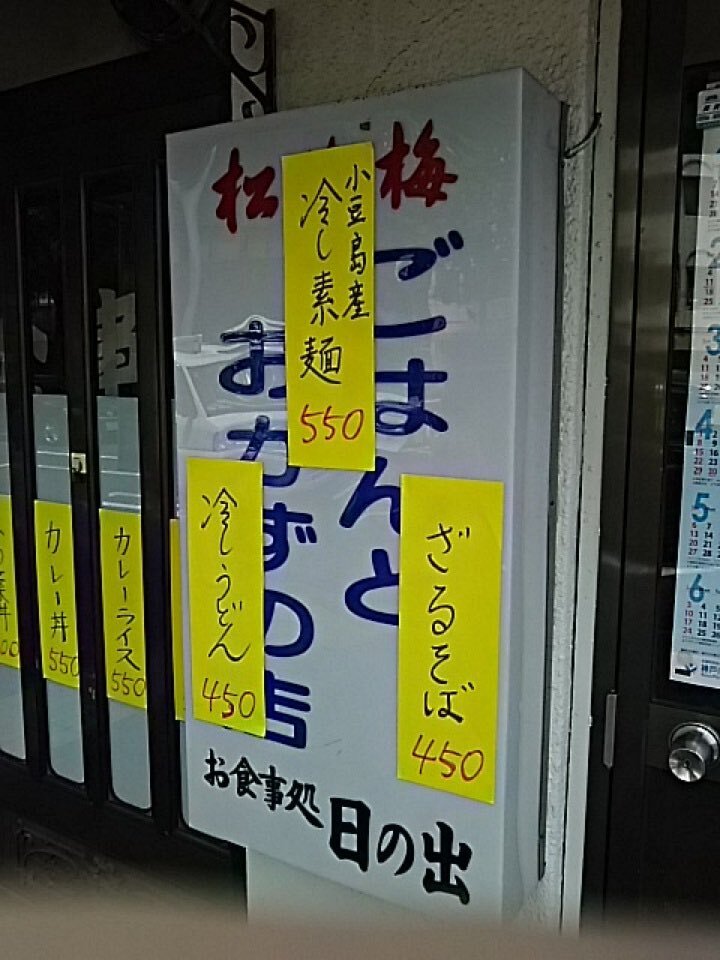 松 梅
ごはんと
おかずの店
お食事処
日の出
小豆島産
冷し素麺
550
冷しうどん
450
ざるそば
450
カレーライス
550
カレー丼
550
丼
事
3
4
5
6